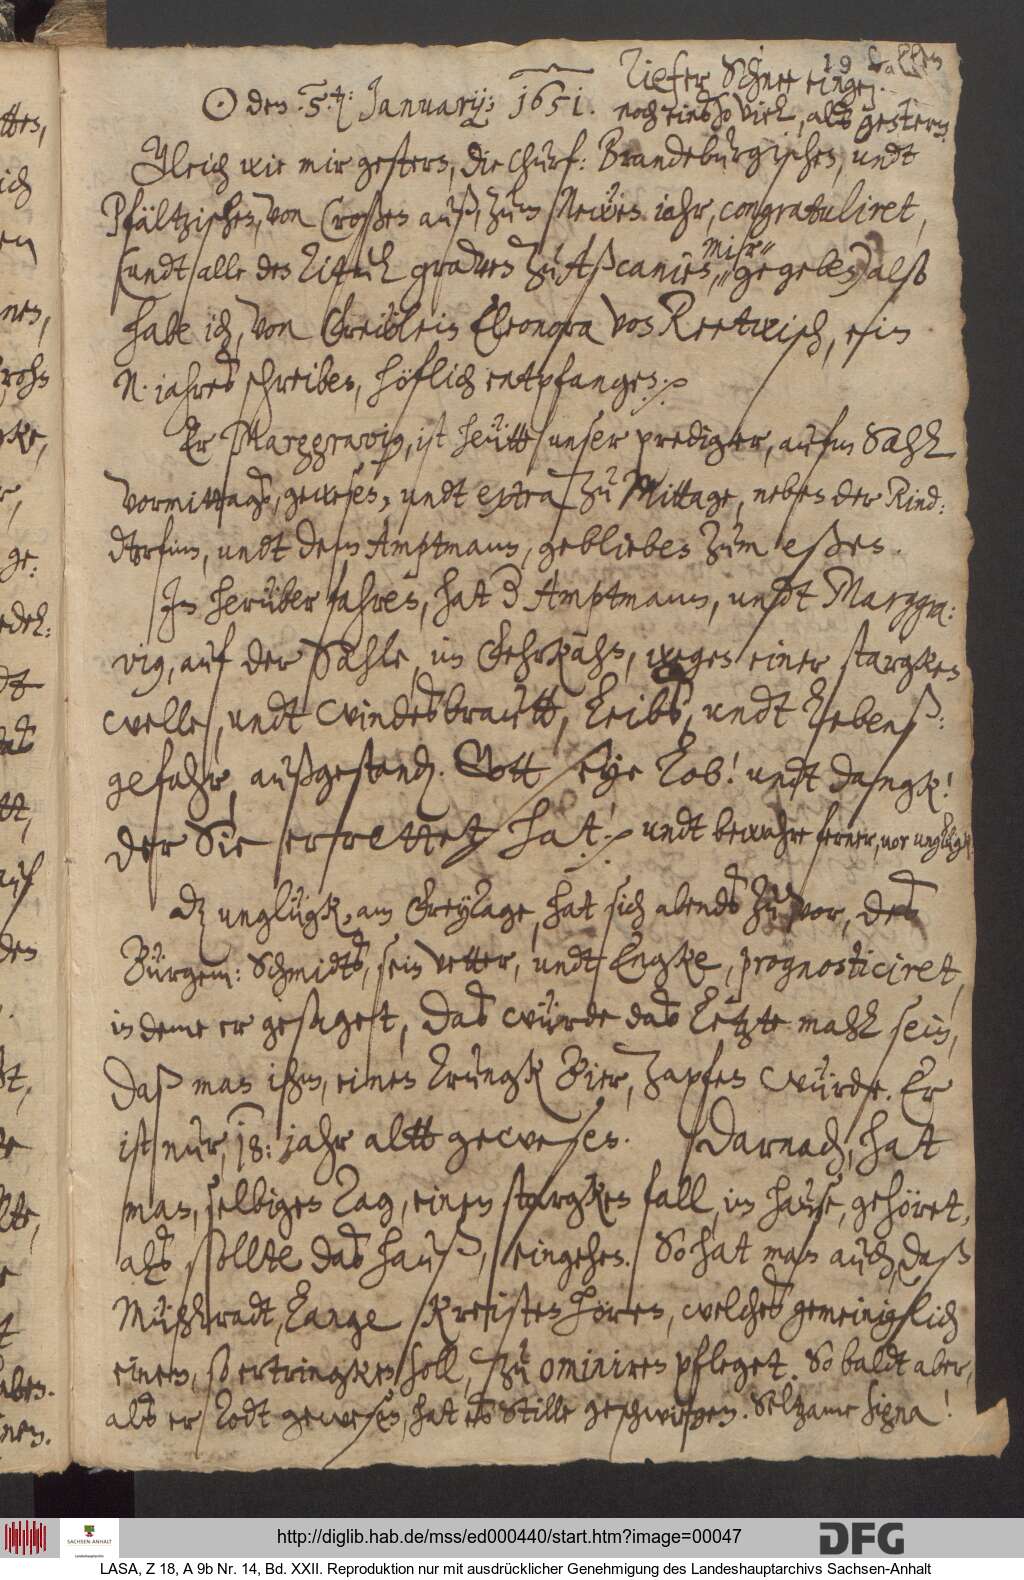 19
☉ den 5.t: January: 1651. Tiefer Schnee eingefallen
noch eins so viel, alß gestern.
Gleich wie mir gestern, die Churf: Brandeburgischen, undt
Pfältzischen, von Croßen auß, zum Neẅen jahr, congratuliret,
(undt alle den Titul gravens zu Aßcanien, mir gegeben) alß
habe ich, von Freẅlein Eleonora von Reetwisch, ein
N. jahrsschreiben, höflich entpfangen.
Er Marggravig, ist heütte unser prediger, aufm Sahl
vormittags, gewesen, undt extra zu Mittage, neben der Rind:
dtorfinn, undt dem Amptmann, geblieben zum eßen.
Im herüber fahren, hat der Amptmann, undt Marggra:
vig, auf der Sahle, im Fehrkahn, wegen einer starcken
welle, undt windesbrautt, Leibs, undt Lebenß:
gefahr, außgestanden. Gott seye Lob! undt dangk!
der Sie errettet hat! undt bewahre ferner, vor unglügk
Das unglügk, am Freytage, hat sich abends zuvor, des
Bürgem: Schmidts, sein vetter, undt Engke, prognosticiret,
in deme er gesaget, das würde das letzte mahl sein,
daß man ihm, einen trungk Bier, zapfen würde. Er
ist nur, 18: jahr altt gewesen. Darnach, hat
man, selbigen Tag, einen stargken fall, im hause, gehöret,
als sollte das hauß, eingehen. So hat man auch, daß
Mühlradt, lange kreisten hören, welches gemeiniglich
einen, so ertringken soll, zu ominiren pfleget. So baldt aber,
als er todt gewesen, hat es stille geschwigen. Seltzame signa!
http://diglib.hab.de/mss/ed000440/start.htm?image=00047
SACHSEN-ANHALT
Landeshauptarchiv
DFG
LASA, Z 18, A 9b Nr. 14, Bd. XXII. Reproduktion nur mit ausdrücklicher Genehmigung des Landeshauptarchivs Sachsen-Anhalt